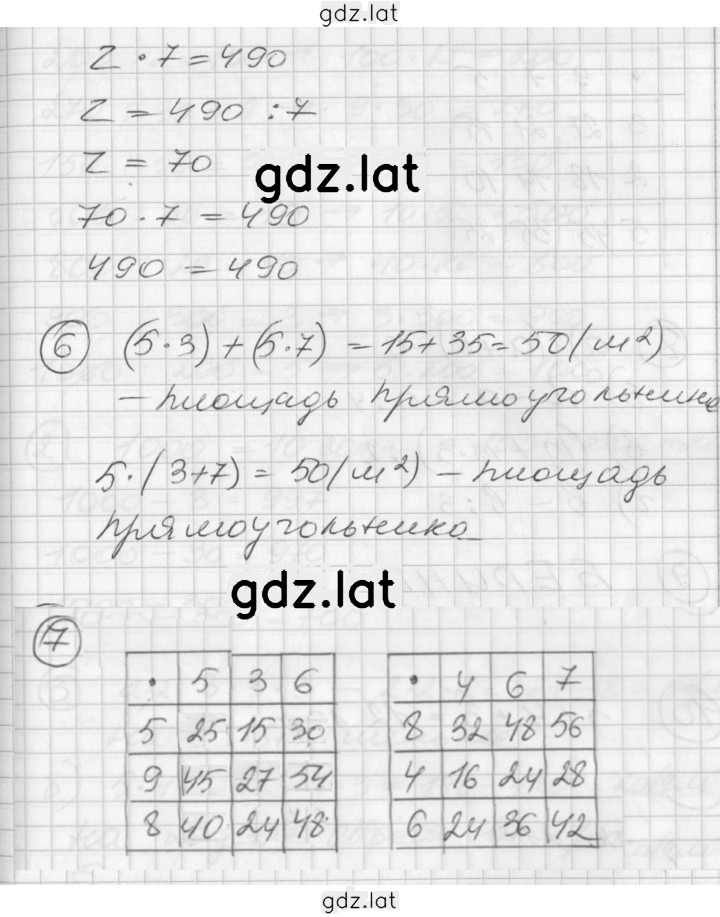 gdz.lat
z · 7 = 490
z = 490 : 7
z = 70
gdz.lat
70 · 7 = 490
490 = 490
6 (5 · 3) + (5 · 7) = 15 + 35 = 50 (м²)
– площадь прямоугольника
5 · (3 + 7) = 50 (м²) – площадь
прямоугольника
gdz.lat
7
· 5 3 6
5 25 15 30
9 45 27 54
8 40 24 48
· 4 6 7
8 32 48 56
4 16 24 28
6 24 36 42
gdz.lat